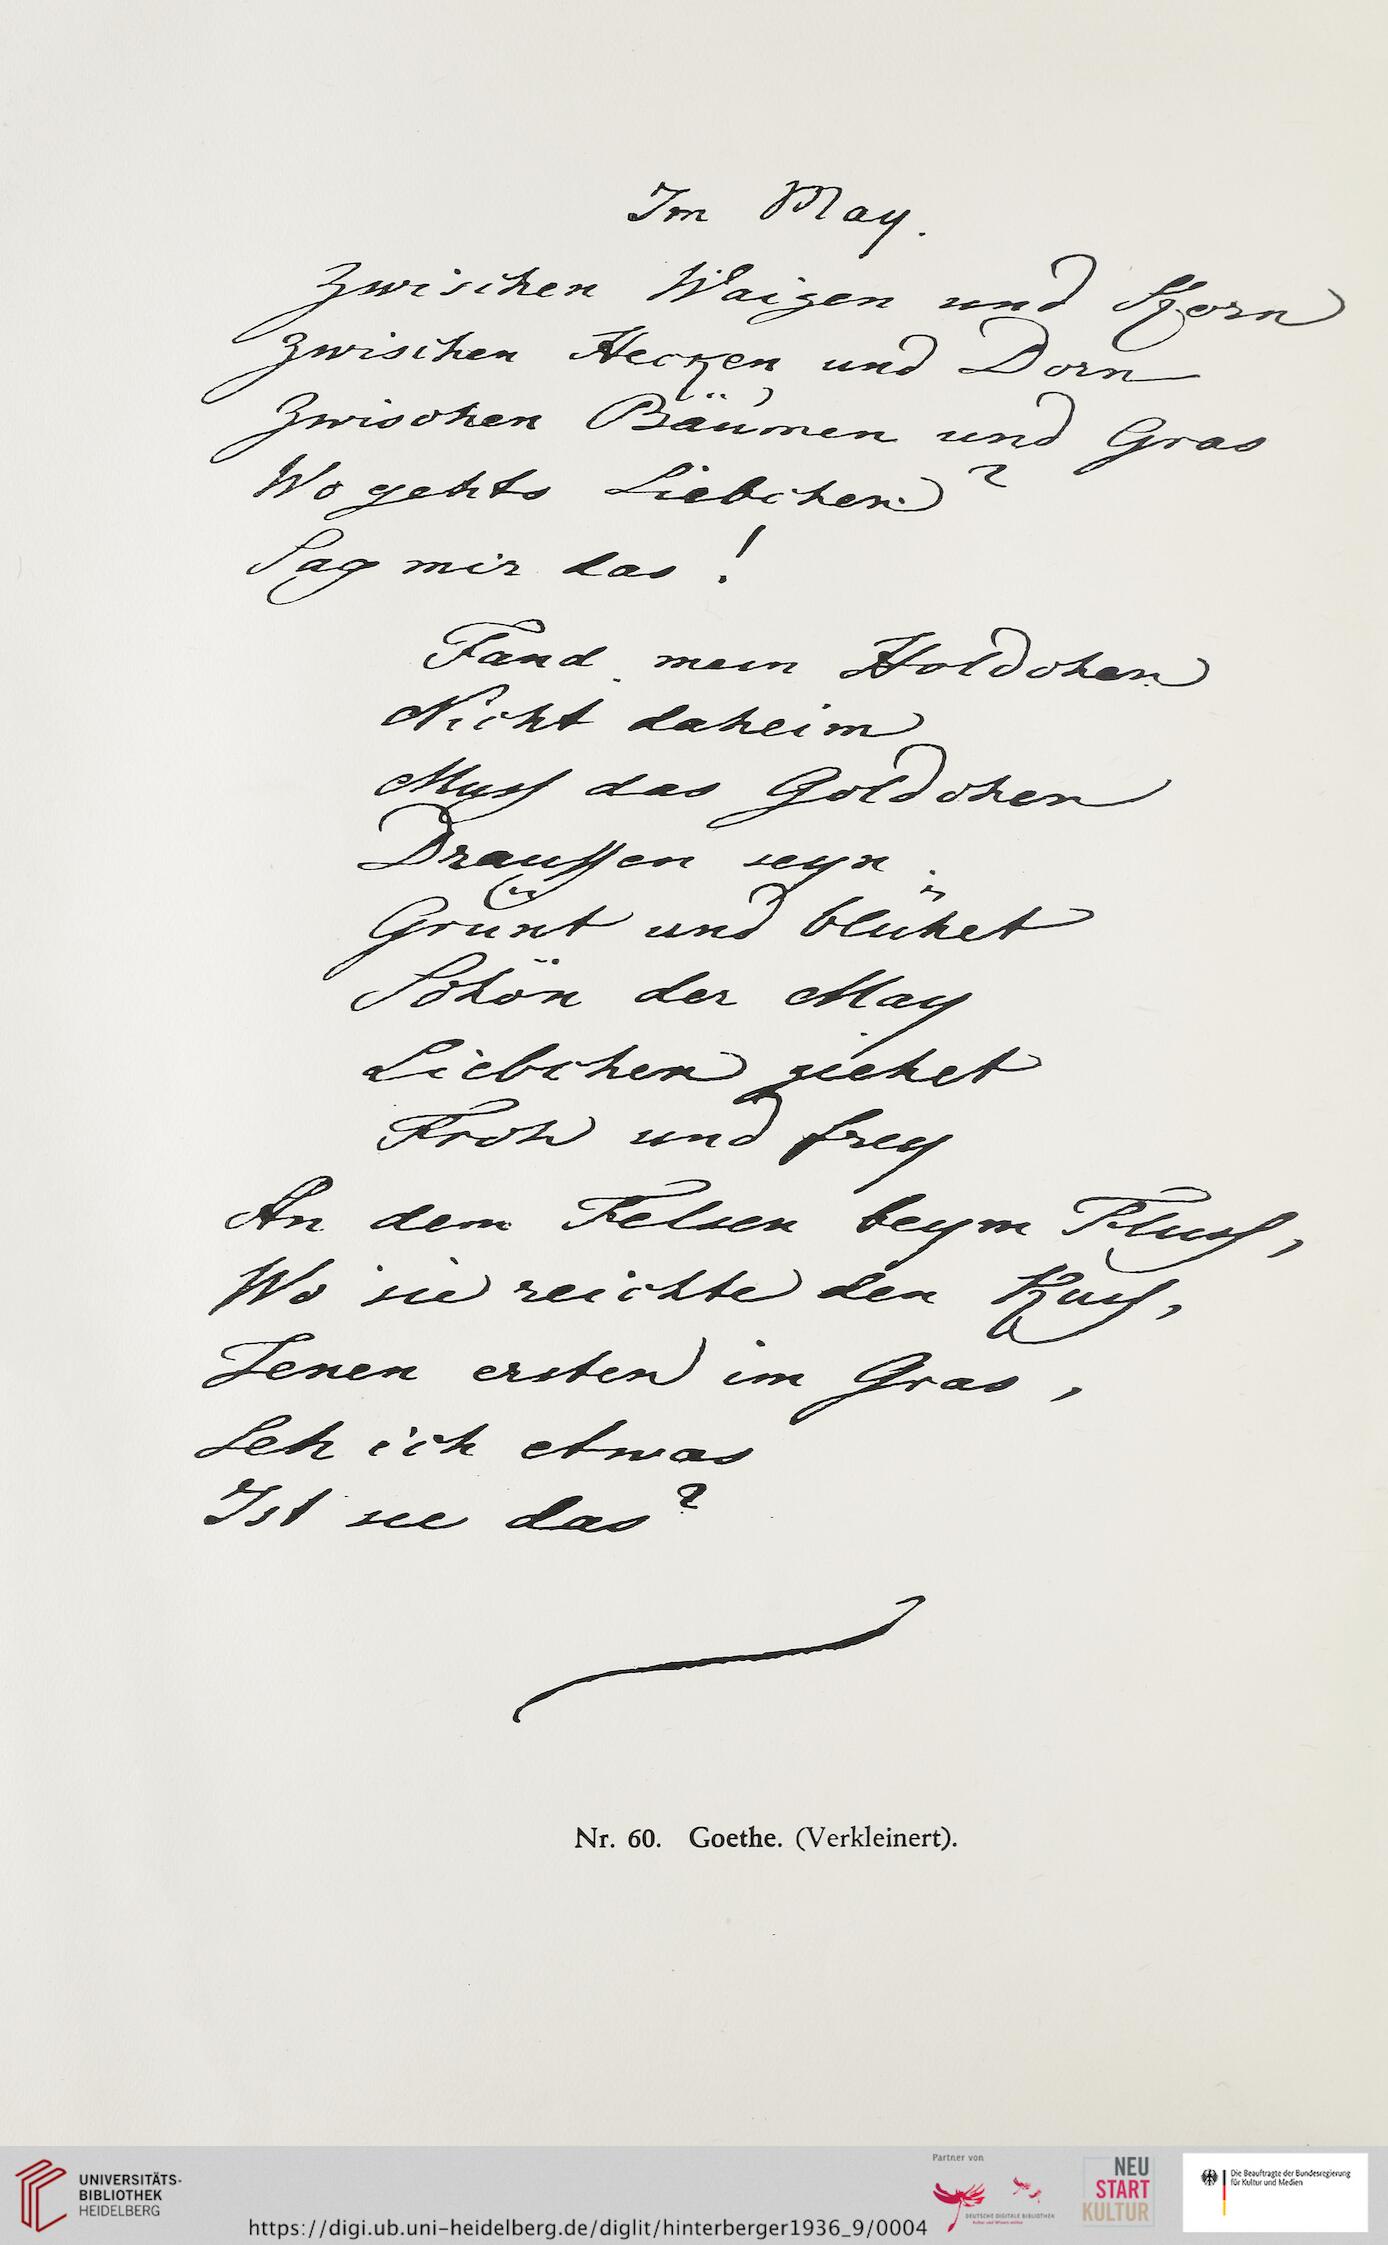 Im May.
Zwischen Waizen und Korn
Zwischen Hecken und Dorn
Zwischen Bäumen und Gras
Wo gehts Liebchen?
Sag mir das!
Fand mein Holdchen
Nicht daheim
Muss das Goldchen
Draussen seyn.
Grünt und blühet
Schön der May
Liebchen ziehet
Froh und frey
An dem Felsen beym Fluss,
Wo sie reichte den Kuss,
Jenen ersten im Gras,
Seh ich etwas
Ist sie das?
Nr. 60. Goethe. (Verkleinert).
UNIVERSITÄTS-
BIBLIOTHEK
HEIDELBERG
https://digi.ub.uni-heidelberg.de/diglit/hinterberger1936_9/0004
Partner von
DEUTSCHE DIGITALE BIBLIOTHEK
Kultur und Wissen online
NEU
START
KULTUR
Die Beauftragte der Bundesregierung
für Kultur und Medien